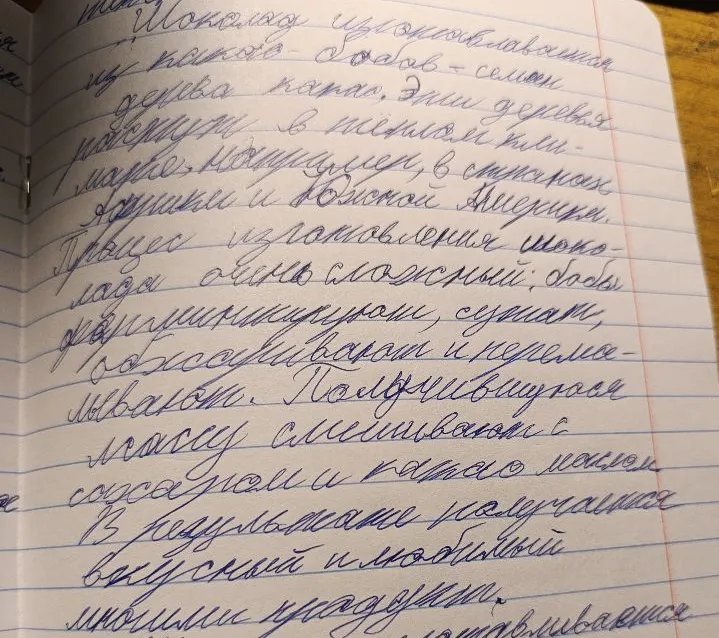 Шоколад изготавлаваится
из какао-бобов - семян
дерева какао. Эти деревья
растут в тёплом кли-
мате, например, в странах
Африки и Южной Америки.
Процес изготовления шоко-
лада очень сложный: бобы
ферминтируют, сушат,
обжаривают и перема-
лывают. Получившуюся
массу смешивают с
сахаром и какао маслом
В результате получается
вкусный и любимый
многими продукт.